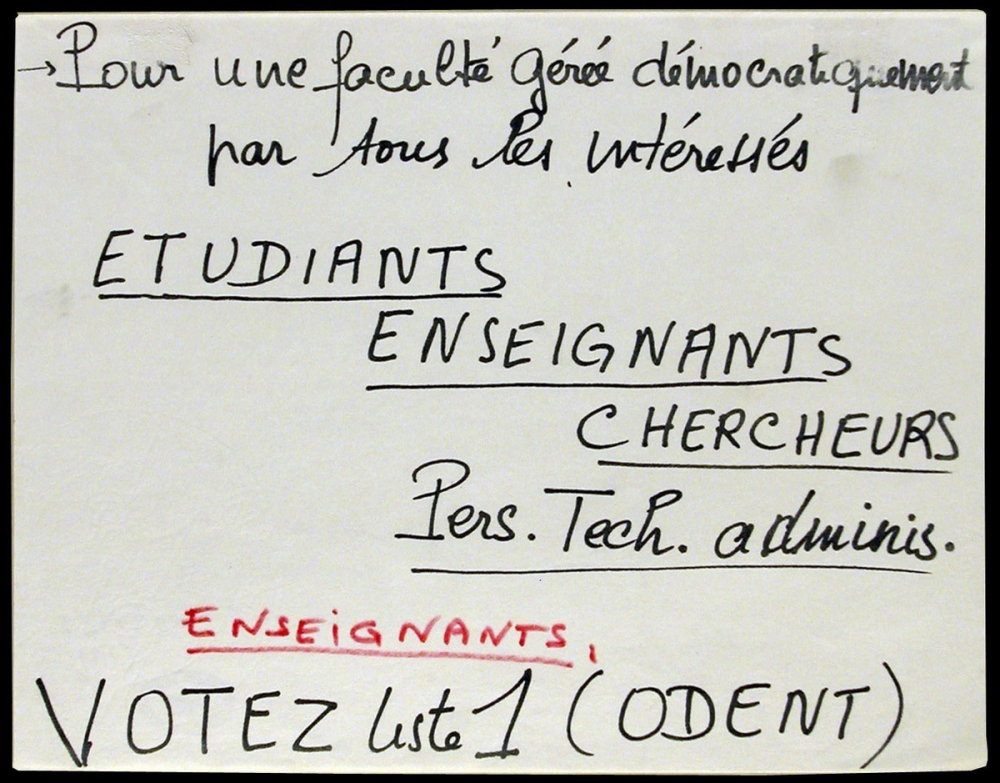 → Pour une faculté gérée démocratiquement
par tous les intéressés
ETUDIANTS
ENSEIGNANTS
CHERCHEURS
Pers. Tech. adminis.
ENSEiGNANTS,
VOTEZ liste 1 (ODENT)